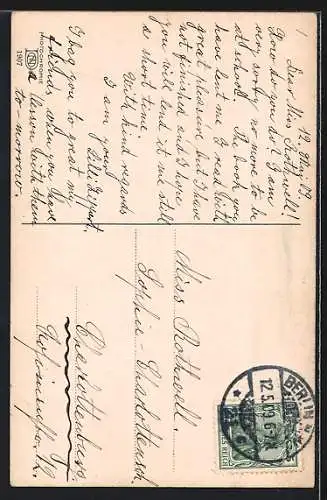 12. May 09.
Dear Miss Rothwell!
How do you do? I am
very sorry no more to be
at school. The book you
have lent me I read with
great pleasure, but I have
not finished and I hope
you will lend it me still
a short time.
With kind regards
I am yours
I beg you to greet my
friends when you have
a lesson with them
to-morrow.
PHOTOCHEMIE
1907
Miss Rothwell.
Sophie-Charlottensch.
Charlottenburg.
BERLIN
12.5.09. 6-7N